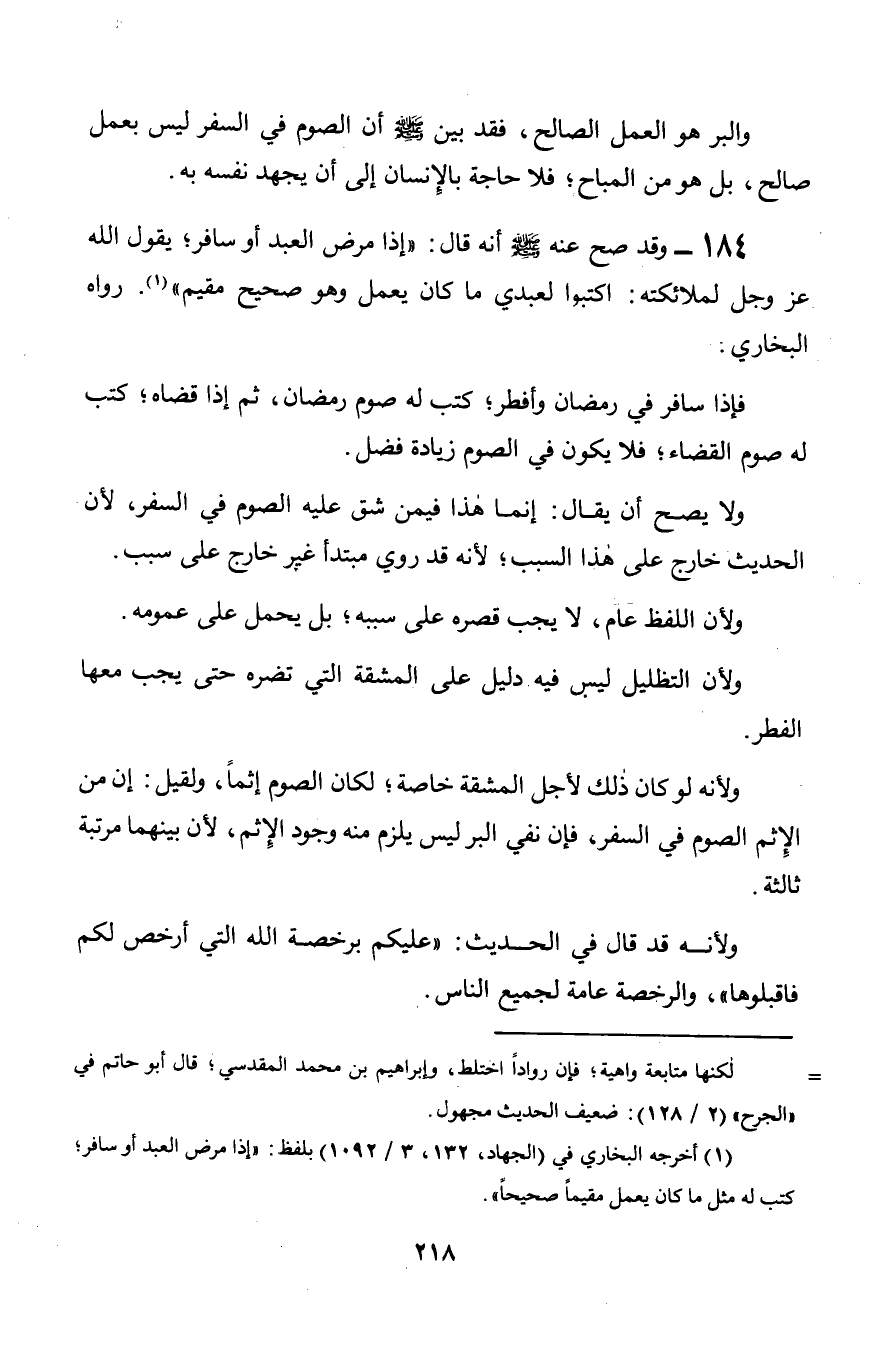 والبر هو العمل الصالح، فقد بين ﷺ أن الصوم في السفر ليس بعمل
صالح، بل هو من المباح؛ فلا حاجة بالإنسان إلى أن يجهد نفسه به.
١٨٤ ـ وقد صح عنه ﷺ أنه قال: «إذا مرض العبد أو سافر؛ يقول الله
عز وجل لملائكته: اكتبوا لعبدي ما كان يعمل وهو صحيح مقيم»(١). رواه
البخاري:
فإذا سافر في رمضان وأفطر؛ كتب له صوم رمضان، ثم إذا قضاه؛ كتب
له صوم القضاء؛ فلا يكون في الصوم زيادة فضل.
ولا يصح أن يقال: إنما هٰذا فيمن شق عليه الصوم في السفر، لأن
الحديث خارج على هٰذا السبب؛ لأنه قد روي مبتدأ غير خارج على سبب.
ولأن اللفظ عام، لا يجب قصره على سببه؛ بل يحمل على عمومه.
ولأن التظليل ليس فيه دليل على المشقة التي تضره حتى يجب معها
الفطر.
ولأنه لو كان ذٰلك لأجل المشقة خاصة؛ لكان الصوم إثماً، ولقيل: إن من
الإثم الصوم في السفر، فإن نفي البر ليس يلزم منه وجود الإثم، لأن بينهما مرتبة
ثالثة.
ولأنه قد قال في الحديث: «عليكم برخصة الله التي أرخص لكم
فاقبلوها»، والرخصة عامة لجميع الناس.
= لٰكنها متابعة واهية؛ فإن رواداً اختلط، وإبراهيم بن محمد المقدسي؛ قال أبو حاتم في
«الجرح» (٢ / ١٢٨): ضعيف الحديث مجهول.
(١) أخرجه البخاري في (الجهاد، ١٣٢، ٣ / ١٠٩٢) بلفظ: «إذا مرض العبد أو سافر؛
كتب له مثل ما كان يعمل مقيماً صحيحاً».
٢١٨